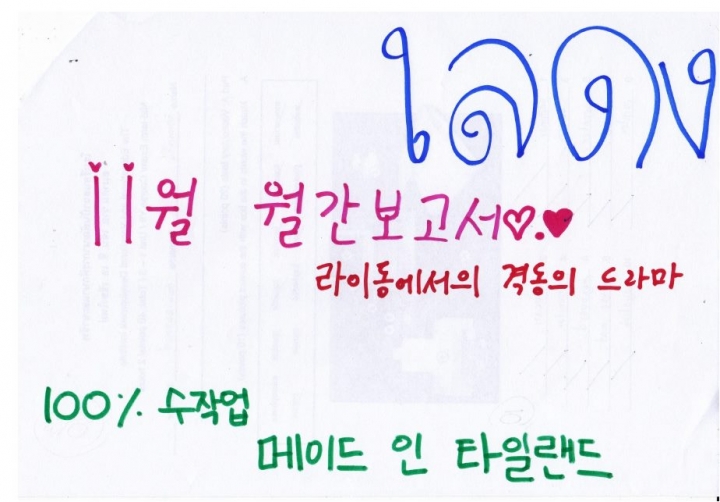 ใลดง
11월 월간보고서♡.♥
라이동에서의 격동의 드라마
100% 수작업
메이드 인 타일랜드